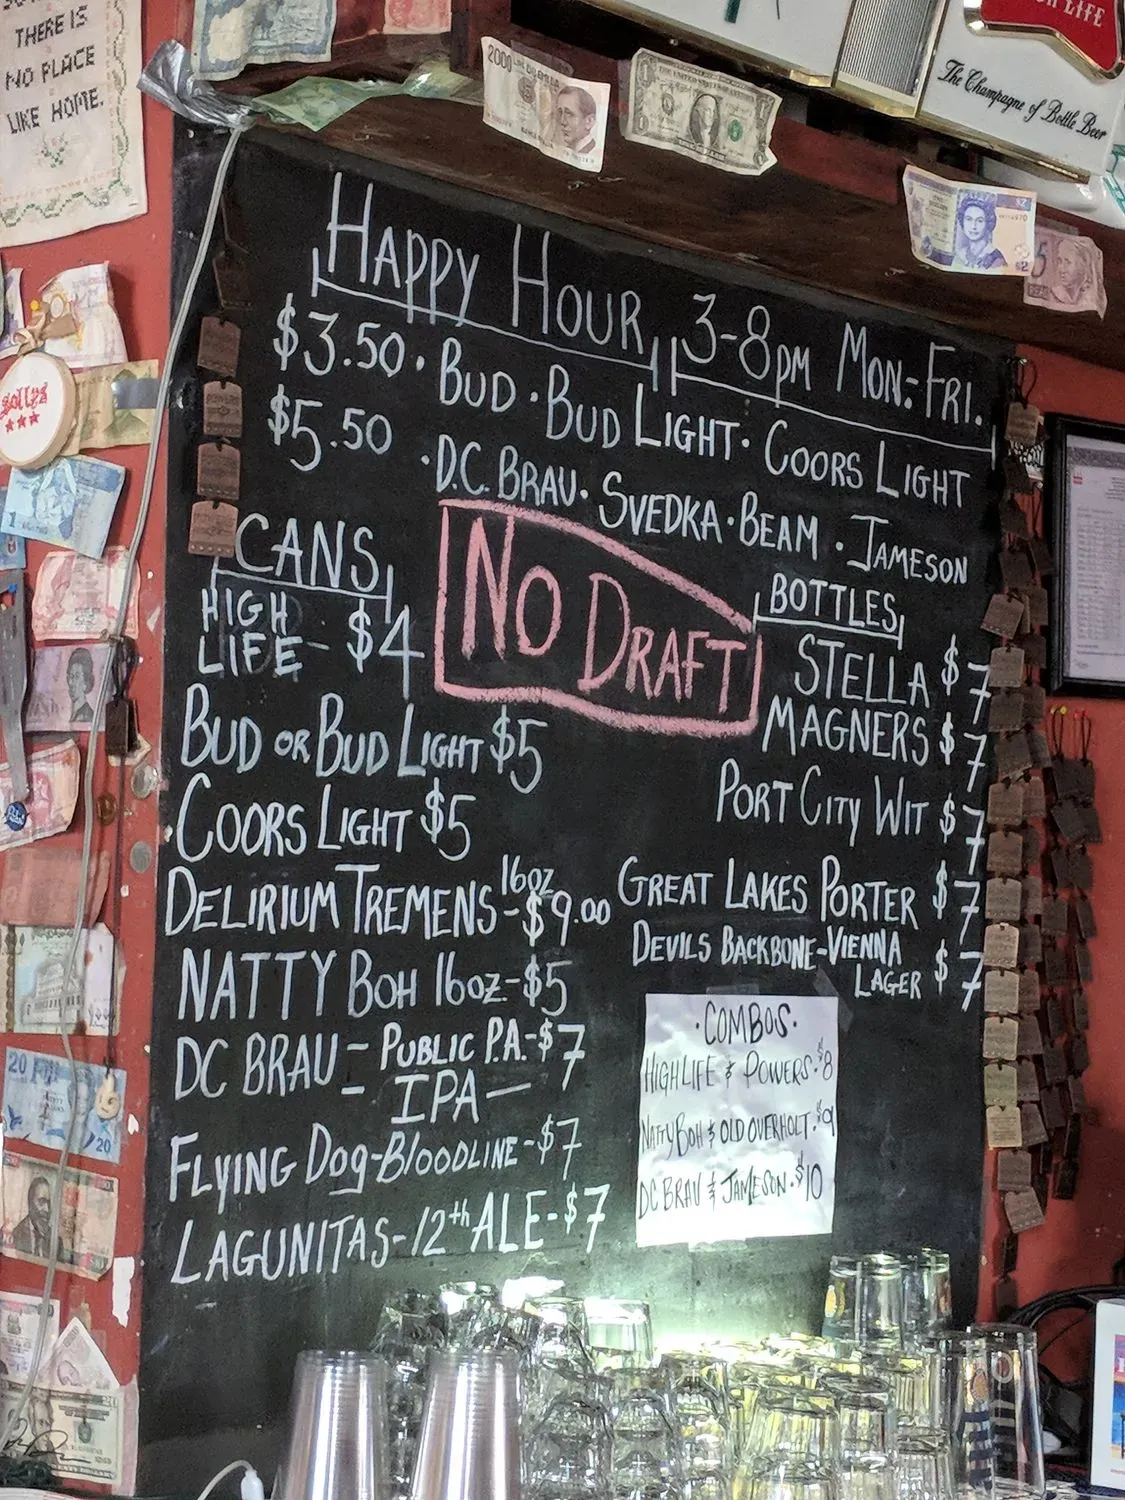 THERE IS
NO PLACE
LIKE HOME.
2000
OR LIFE
The Champagne of Bottle Beer
HAPPY HOUR 3-8PM MON.-FRI.
$3.50 · BUD · BUD LIGHT · COORS LIGHT
$5.50 · D.C. BRAU · SVEDKA · BEAM · JAMESON
NO DRAFT
CANS
HIGH
LIFE - $4
BUD OR BUD LIGHT $5
COORS LIGHT $5
DELIRIUM TREMENS 16oz - $9.00
NATTY BOH 16oz - $5
DC BRAU - PUBLIC P.A. - $7
- IPA -
FLYING DOG - BLOODLINE - $7
LAGUNITAS - 12th ALE - $7
BOTTLES
STELLA $7
MAGNERS $7
PORT CITY WIT $7
GREAT LAKES PORTER $7
DEVILS BACKBONE - VIENNA
LAGER $7
· COMBOS ·
HIGH LIFE & POWERS · $8
NATTY BOH & OLD OVERHOLT · $9
DC BRAU & JAMESON · $10
20
20